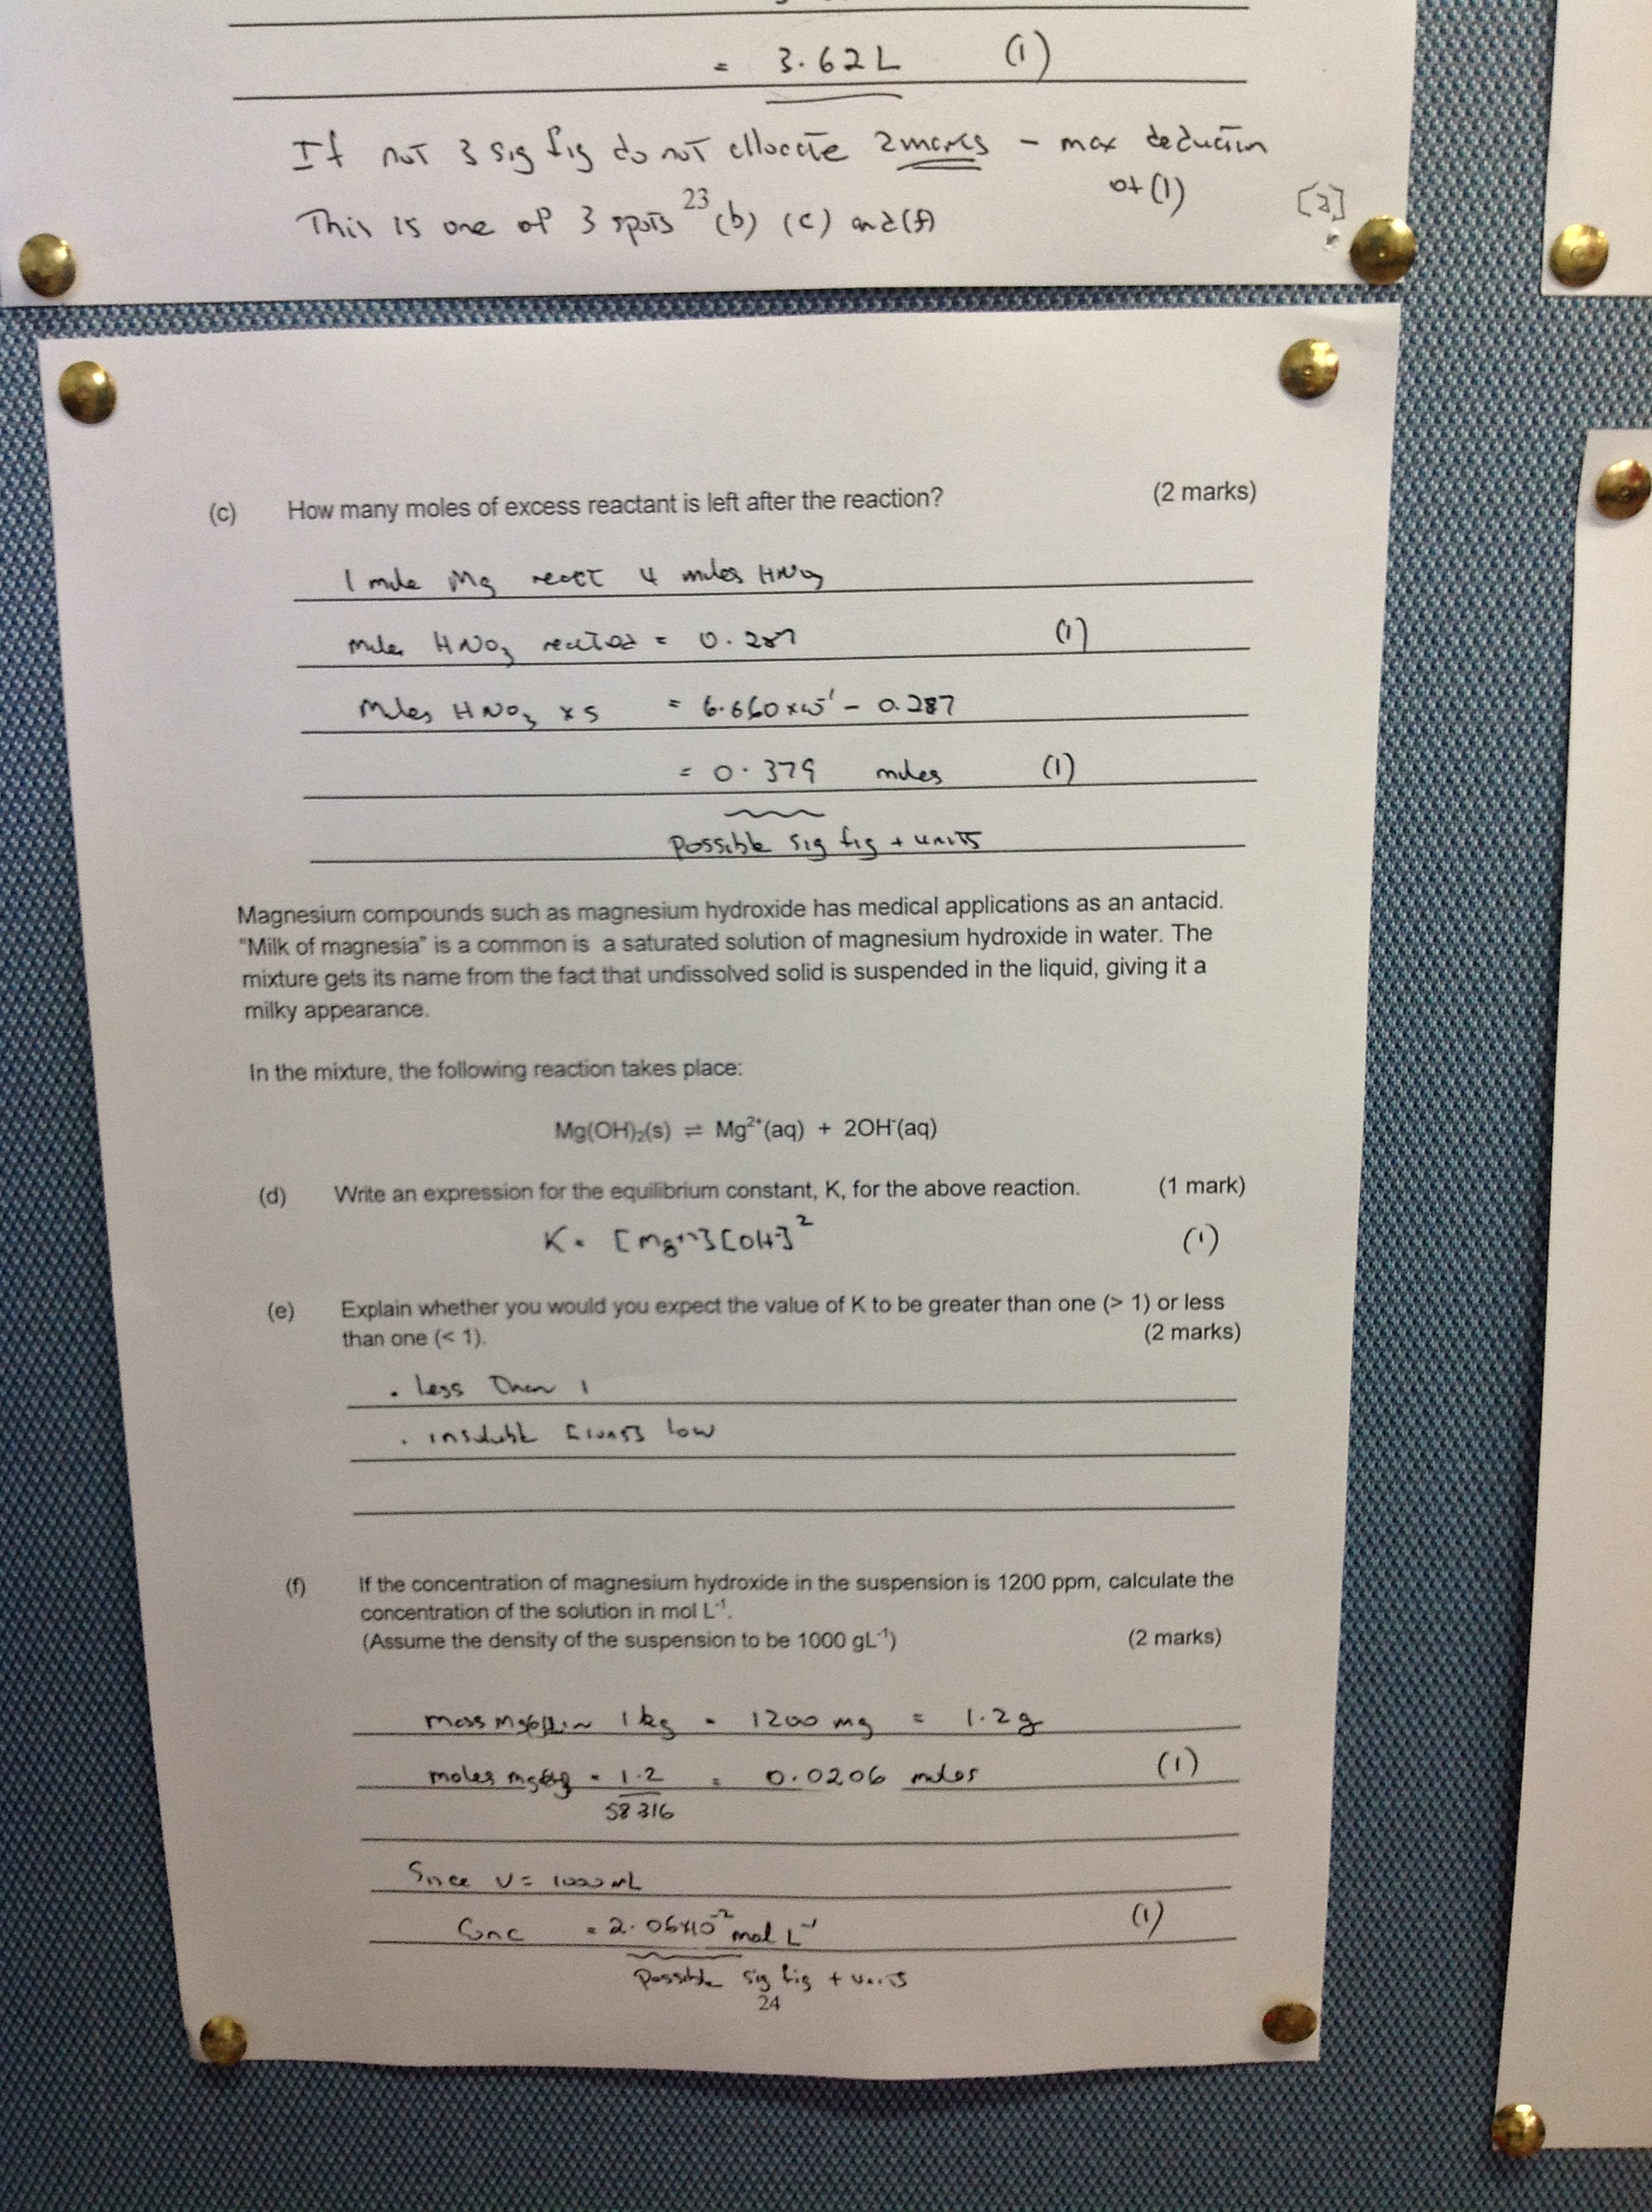 = 3.62L (1)
If not 3 sig fig do not allocate 2 marks – max deduction
of (1)
[2]
23
This is one of 3 spots (b) (c) and (f)
(c) How many moles of excess reactant is left after the reaction? (2 marks)
1 mole Mg react 4 moles HNO3
moles HNO3 reacted = 0.287 (1)
Moles HNO3 xs = 6.660x10⁻¹ – 0.287
= 0.379 moles (1)
possible sig fig + units
Magnesium compounds such as magnesium hydroxide has medical applications as an antacid.
"Milk of magnesia" is a common is a saturated solution of magnesium hydroxide in water. The
mixture gets its name from the fact that undissolved solid is suspended in the liquid, giving it a
milky appearance.
In the mixture, the following reaction takes place:
Mg(OH)₂(s) ⇌ Mg²⁺(aq) + 2OH⁻(aq)
(d) Write an expression for the equilibrium constant, K, for the above reaction. (1 mark)
K = [Mg²⁺][OH⁻]² (1)
(e) Explain whether you would you expect the value of K to be greater than one (> 1) or less
than one (< 1). (2 marks)
. less than 1
. insoluble [ions] low
(f) If the concentration of magnesium hydroxide in the suspension is 1200 ppm, calculate the
concentration of the solution in mol L⁻¹.
(Assume the density of the suspension to be 1000 gL⁻¹) (2 marks)
mass in 1 kg = 1200 mg = 1.2g
moles = 1.2 = 0.0206 moles (1)
58 316
Since V = 1000 mL
Conc = 2.06x10⁻² mol L⁻¹ (1)
possible sig fig + units
24